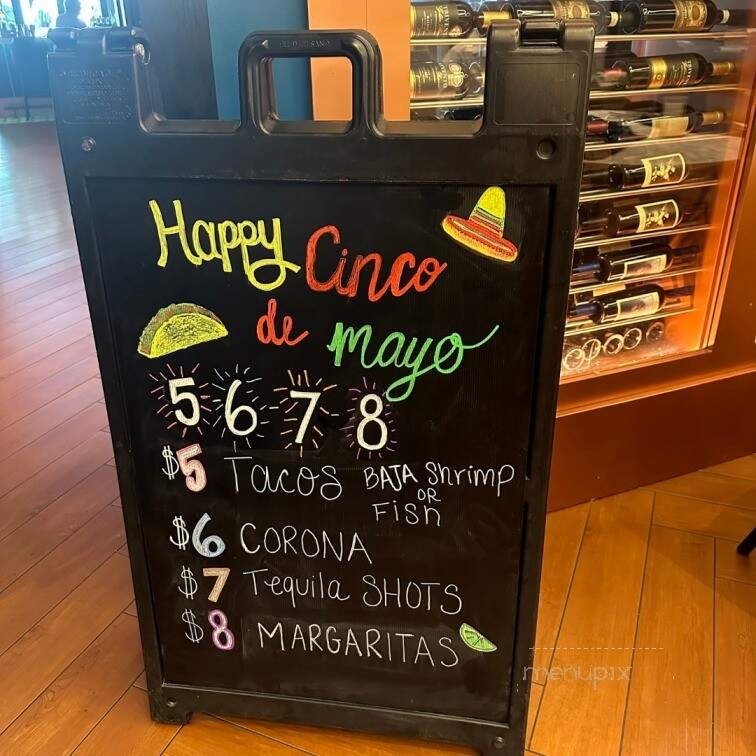 Happy Cinco
de mayo
5 6 7 8
$5 Tacos BAJA Shrimp
OR
Fish
$6 CORONA
$7 Tequila SHOTS
$8 MARGARITAS
menupix